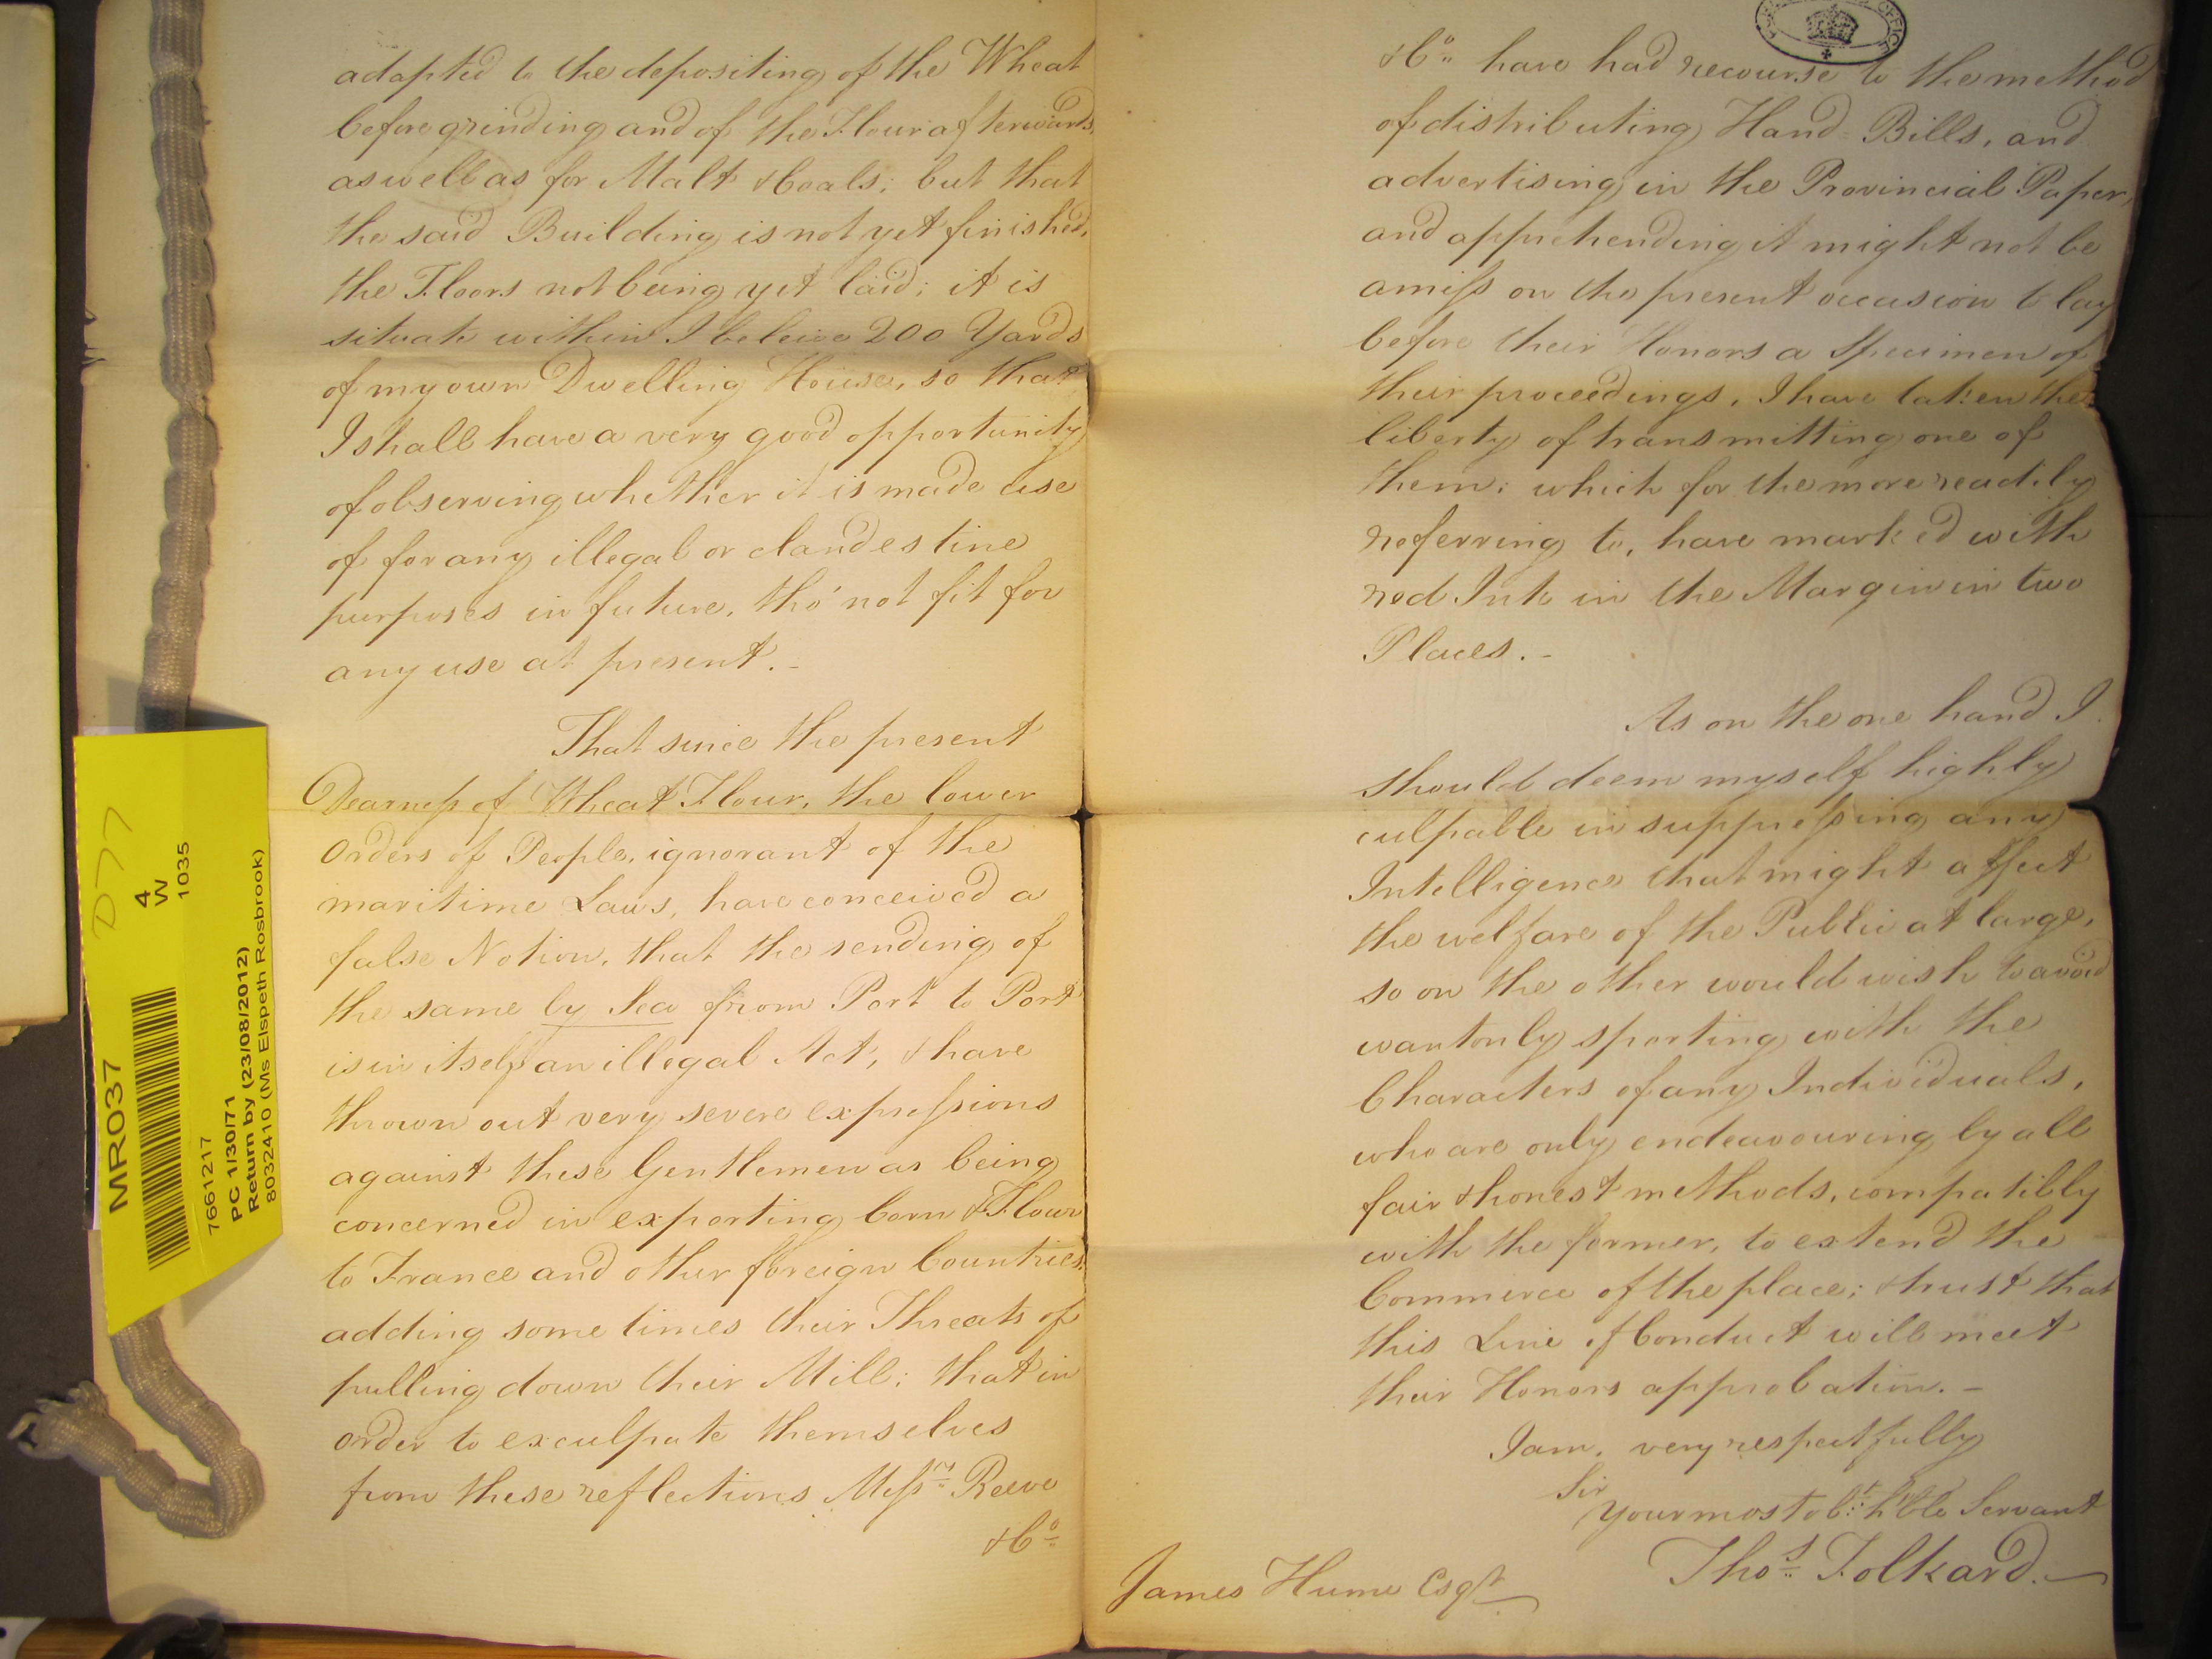 adapted to the depositing of the Wheat
before grinding and of the Flour afterwards,
as well as for Malt & Coals; but that
the said Building is not yet finished,
the Floors not being yet laid; it is
situate within I beleive 200 Yards
of my own Dwelling House, so that
I shall have a very good opportunity
of observing whether it is made use
of for any illegal or clandestine
purposes in future, tho' not fit for
any use at present.-
That since the present
Dearness of Wheat Flour, the lower
Orders of People, ignorant of the
maritime Laws, have conceived a
false Notion, that the sending of
the same by Sea from Port to Port
is in itself an illegal Act, & have
thrown out very severe expressions
against these Gentlemen as being
concerned in exporting Corn & Flour
to France and other foreign Countries,
adding some times their Threats of
pulling down their Mill; that in
order to exculpate themselves
from these reflections Messrs Reeve
& Co
& Co have had recourse to the method
of distributing Hand-Bills, and
advertising in the Provincial Paper,
and apprehending it might not be
amiss on the present occasion to lay
before their Honors a Specimen of
their proceedings, I have taken the
liberty of transmitting one of
them; which for the more readily
referring to, have mark'd with
red Ink in the Margin in two
Places.-
As on the one hand I
should deem myself highly
culpable in suppressing any
Intelligence that might affect
the welfare of the Public at large,
so on the other would wish to avoid
wantonly sporting with the
Characters of any Individuals,
who are only endeavouring by all
fair & honest methods, compatibly
with the former, to extend the
Commerce of the place; & trust that
this Line of Conduct will meet
their Honors approbation.-
I am, very respectfully
Sir
Your most obt h'ble Servant
Thos Folkard.
James Hume Esqr
D77
MR037
4
W
1035
76661217
PC 1/30/71
Return by (23/08/2012)
8032410 (Ms Elspeth Rosbrook)